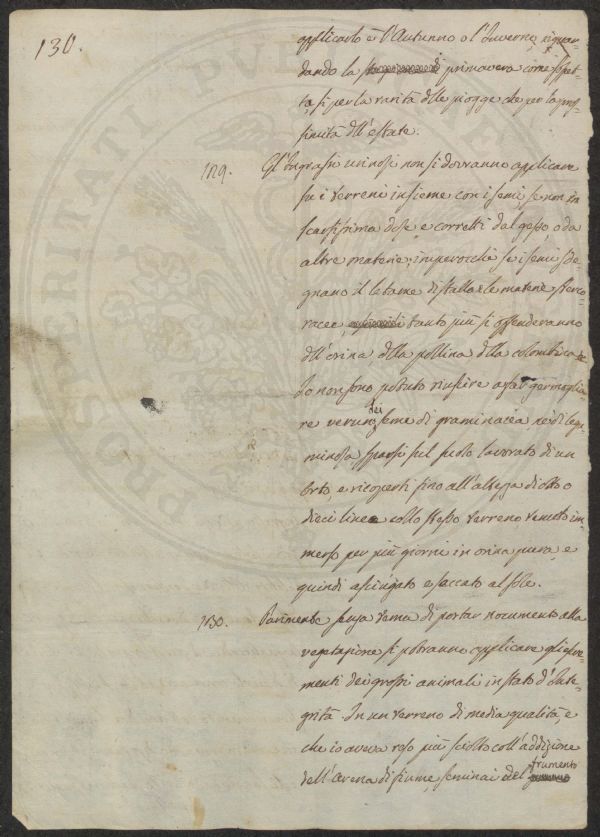 130.
applicarlo è l'Autunno o l'Inverno, riguar-
dando la primavera come sospet-
ta, sì per la rarità delle piogge che per la pros-
simità dell'estate.
129. Gl'Ingrassi urinosi non si dovranno applicare
su i terreni insieme con i semi, se non in
scarsissima dose, e corretti dal gesso, o da
altre materie; imperocchè se i semi sde-
gnano il letame di stalla e le materie sterco-
racee, tanto più si offenderanno
dell'orina, della pollina, della colombina
Io non sono potuto riuscire a far germoglia-
re veruno dei seme di graminacea, nè di legu-
minosa, sparsi sul suolo lavorato di un
orto, e ricoperti fino all'altezza di otto o
dieci linee collo stesso terreno tenuto im-
merso per più giorni in orina pura, e
quindi asciugato e seccato al sole.
130. Parimente senza tema di portar nocumento alla
vegetazione si potranno applicare gli escre-
menti dei grossi animali in stato d'Inte-
grità. In un terreno di media qualità, e
che io aveva reso più sciolto coll'addizione
dell'arena di fiume, seminai del frumento